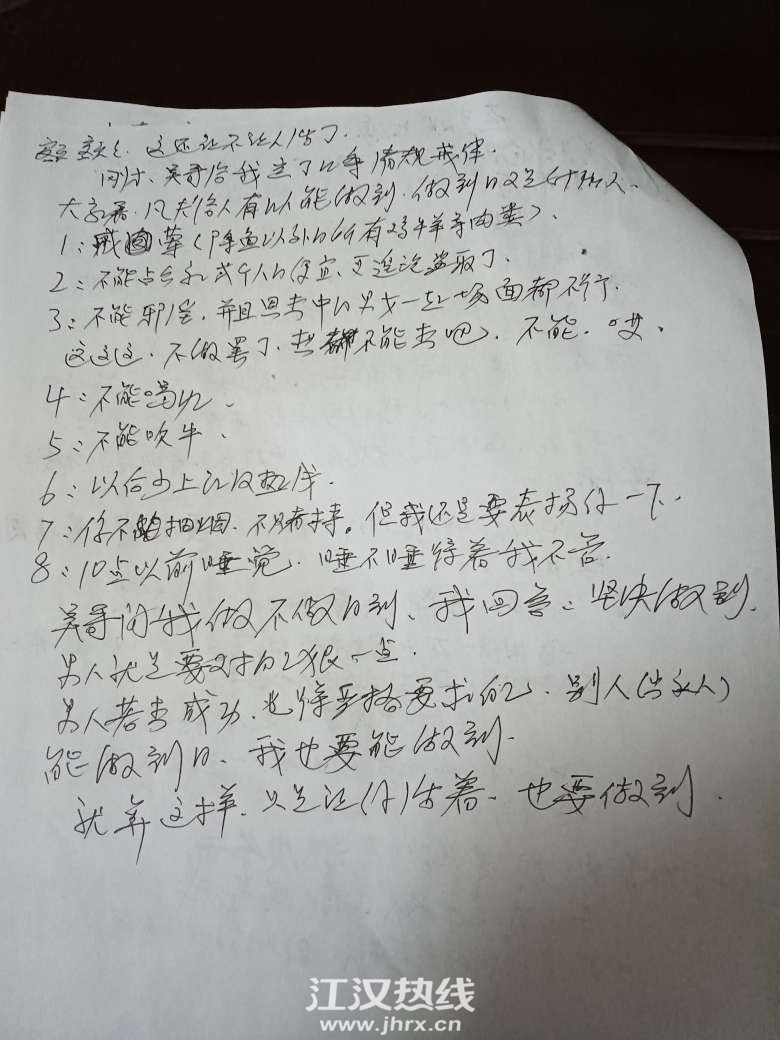 这还让不让人活了.
刚才、吴哥给我定了几条清规戒律.
大家看.凡夫俗人有几人能做到.做到的又是什么人.
1:戒荤(除鱼以外的所有鸡牛羊等肉类).
2:不能占公家或个人的便宜、更遑论盗取了.
3:不能邪淫.并且思想中的男女一起的场面都不行.
这这这.不做罢了.想都不能想吧.不能.哎.
4:不能喝酒.
5:不能吹牛.
6:以后少上江汉热线.
7:你不抽烟.不赌博.但我还是要表扬你一下.
8:10点以前睡觉.睡不睡得着我不管.
吴哥问我做不做的到、我回答:坚决做到.
男人就是要对自己狠一点.
男人若想成功.也得严格要求自己、别人(出家人)
能做到的、我也要能做到.
就算这样.只是让你活着.也要做到.
江汉热线
www.jhrx.cn